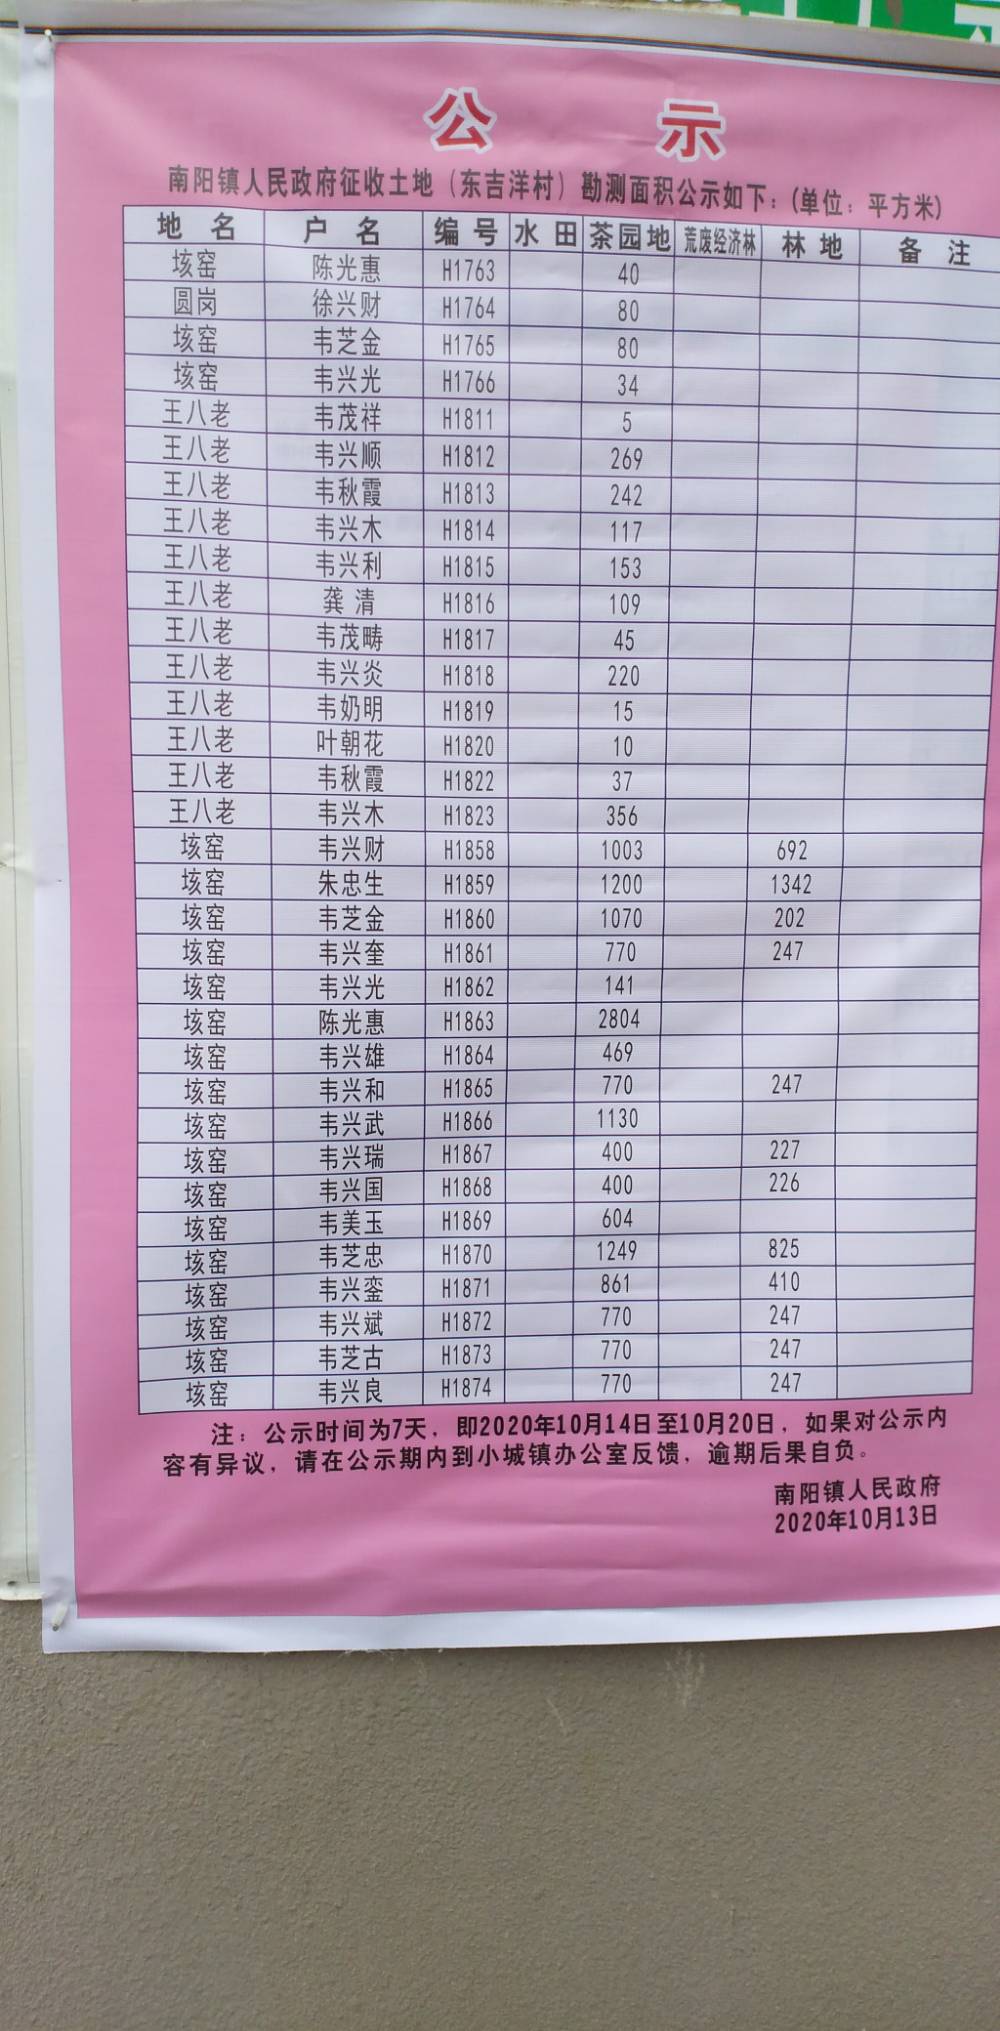 公 示
南阳镇人民政府征收土地（东吉洋村）勘测面积公示如下：(单位：平方米)
地 名 户 名 编 号 水 田 茶园地 荒废经济林 林 地 备 注
垓窑 陈光惠 H1763 40
圆岗 徐兴财 H1764 80
垓窑 韦芝金 H1765 80
垓窑 韦兴光 H1766 34
王八老 韦茂祥 H1811 5
王八老 韦兴顺 H1812 269
王八老 韦秋霞 H1813 242
王八老 韦兴木 H1814 117
王八老 韦兴利 H1815 153
王八老 龚 清 H1816 109
王八老 韦茂畴 H1817 45
王八老 韦兴炎 H1818 220
王八老 韦奶明 H1819 15
王八老 叶朝花 H1820 10
王八老 韦秋霞 H1822 37
王八老 韦兴木 H1823 356
垓窑 韦兴财 H1858 1003 692
垓窑 朱忠生 H1859 1200 1342
垓窑 韦芝金 H1860 1070 202
垓窑 韦兴奎 H1861 770 247
垓窑 韦兴光 H1862 141
垓窑 陈光惠 H1863 2804
垓窑 韦兴雄 H1864 469
垓窑 韦兴和 H1865 770 247
垓窑 韦兴武 H1866 1130
垓窑 韦兴瑞 H1867 400 227
垓窑 韦兴国 H1868 400 226
垓窑 韦美玉 H1869 604
垓窑 韦芝忠 H1870 1249 825
垓窑 韦兴銮 H1871 861 410
垓窑 韦兴斌 H1872 770 247
垓窑 韦芝古 H1873 770 247
垓窑 韦兴良 H1874 770 247
注：公示时间为7天，即2020年10月14日至10月20日，如果对公示内
容有异议，请在公示期内到小城镇办公室反馈，逾期后果自负。
南阳镇人民政府
2020年10月13日